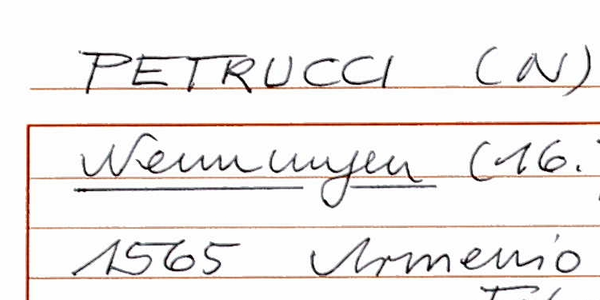 PETRUCCI (N)
Nennungen (16.
1565 Armenio